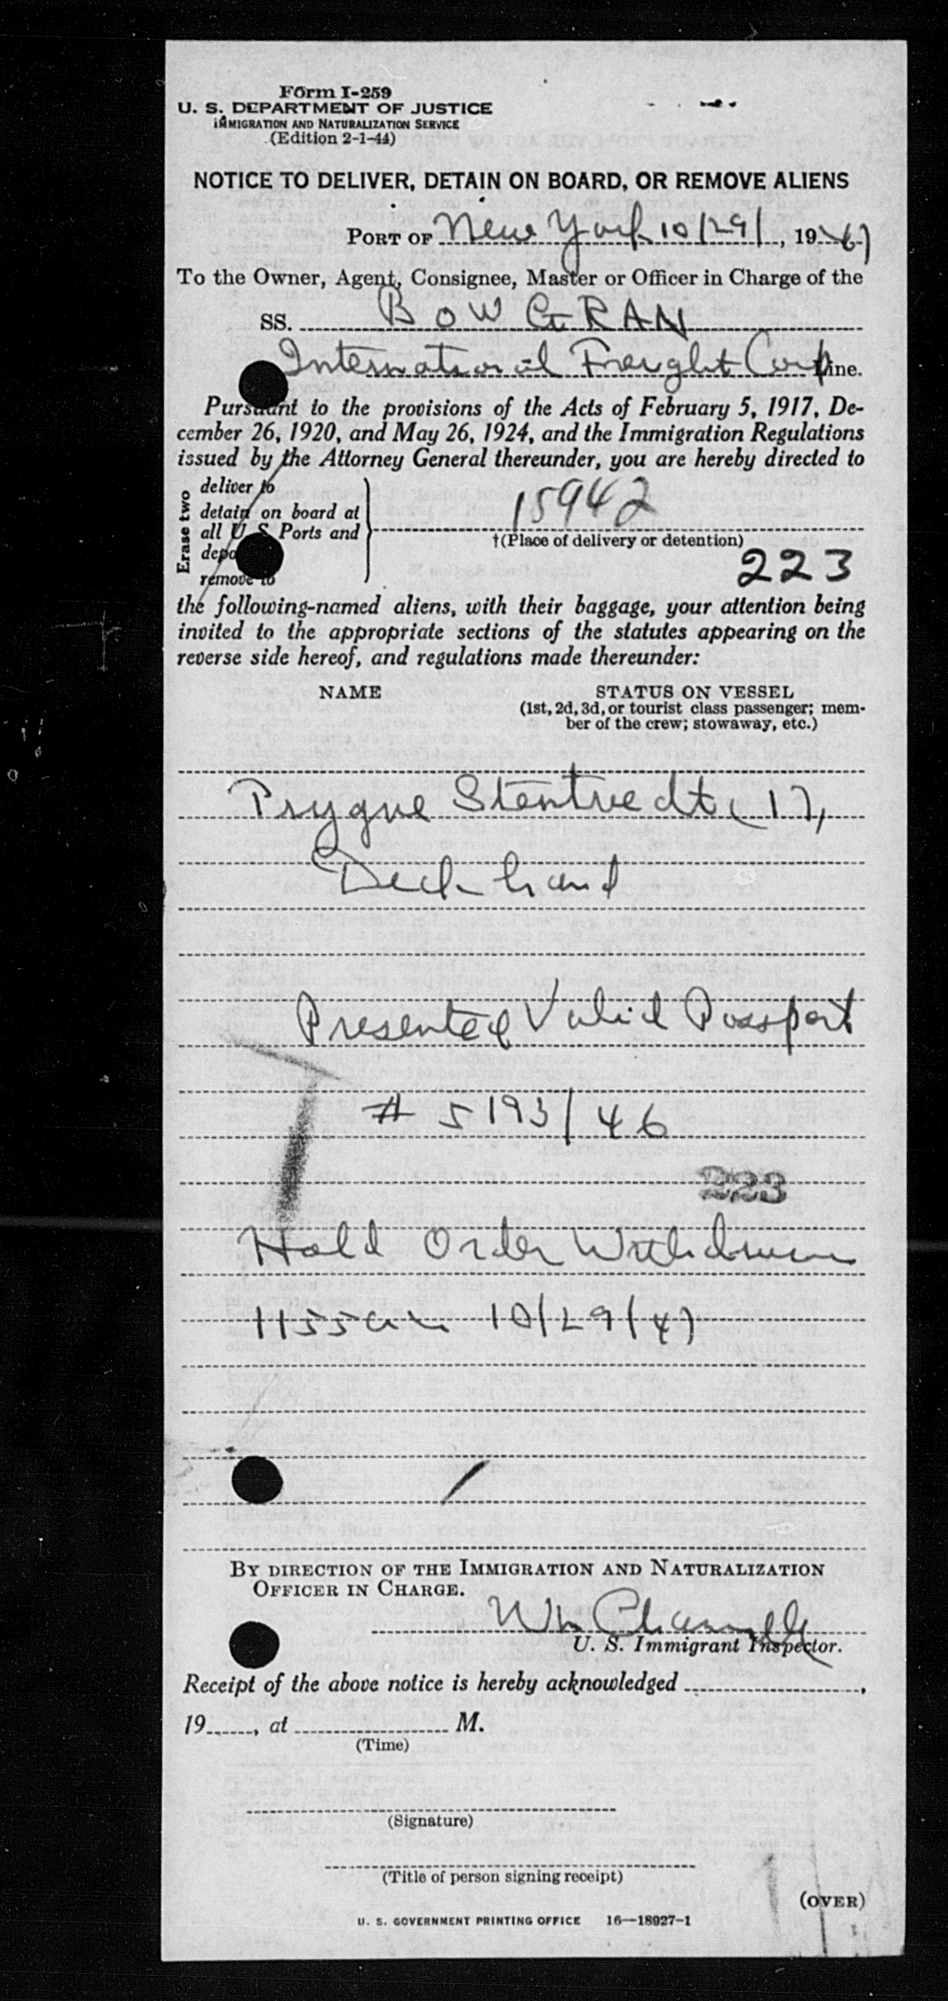 Form I-259
U. S. DEPARTMENT OF JUSTICE
IMMIGRATION AND NATURALIZATION SERVICE
(Edition 2-1-44)
NOTICE TO DELIVER, DETAIN ON BOARD, OR REMOVE ALIENS
PORT OF New York 10/29/, 1947
To the Owner, Agent, Consignee, Master or Officer in Charge of the
SS. BOW GRAN
International Freight Corp Line.
Pursuant to the provisions of the Acts of February 5, 1917, De-
cember 26, 1920, and May 26, 1924, and the Immigration Regulations
issued by the Attorney General thereunder, you are hereby directed to
Erase two
deliver to
detain on board at
all U. S. Ports and
remove to
15942
†(Place of delivery or detention)
223
the following-named aliens, with their baggage, your attention being
invited to the appropriate sections of the statutes appearing on the
reverse side hereof, and regulations made thereunder:
NAME STATUS ON VESSEL
(1st, 2d, 3d, or tourist class passenger; mem-
ber of the crew; stowaway, etc.)
Prygue Stentvedt (17,
Deck hand
Presented Valid Passport
# 5193/46
223
Hold Order Withdrawn
1155am 10/29/47
BY DIRECTION OF THE IMMIGRATION AND NATURALIZATION
OFFICER IN CHARGE.
Wm
U. S. Immigrant Inspector.
Receipt of the above notice is hereby acknowledged ,
19 , at M.
(Time)
(Signature)
(Title of person signing receipt)
(OVER)
U. S. GOVERNMENT PRINTING OFFICE 16—18927-1